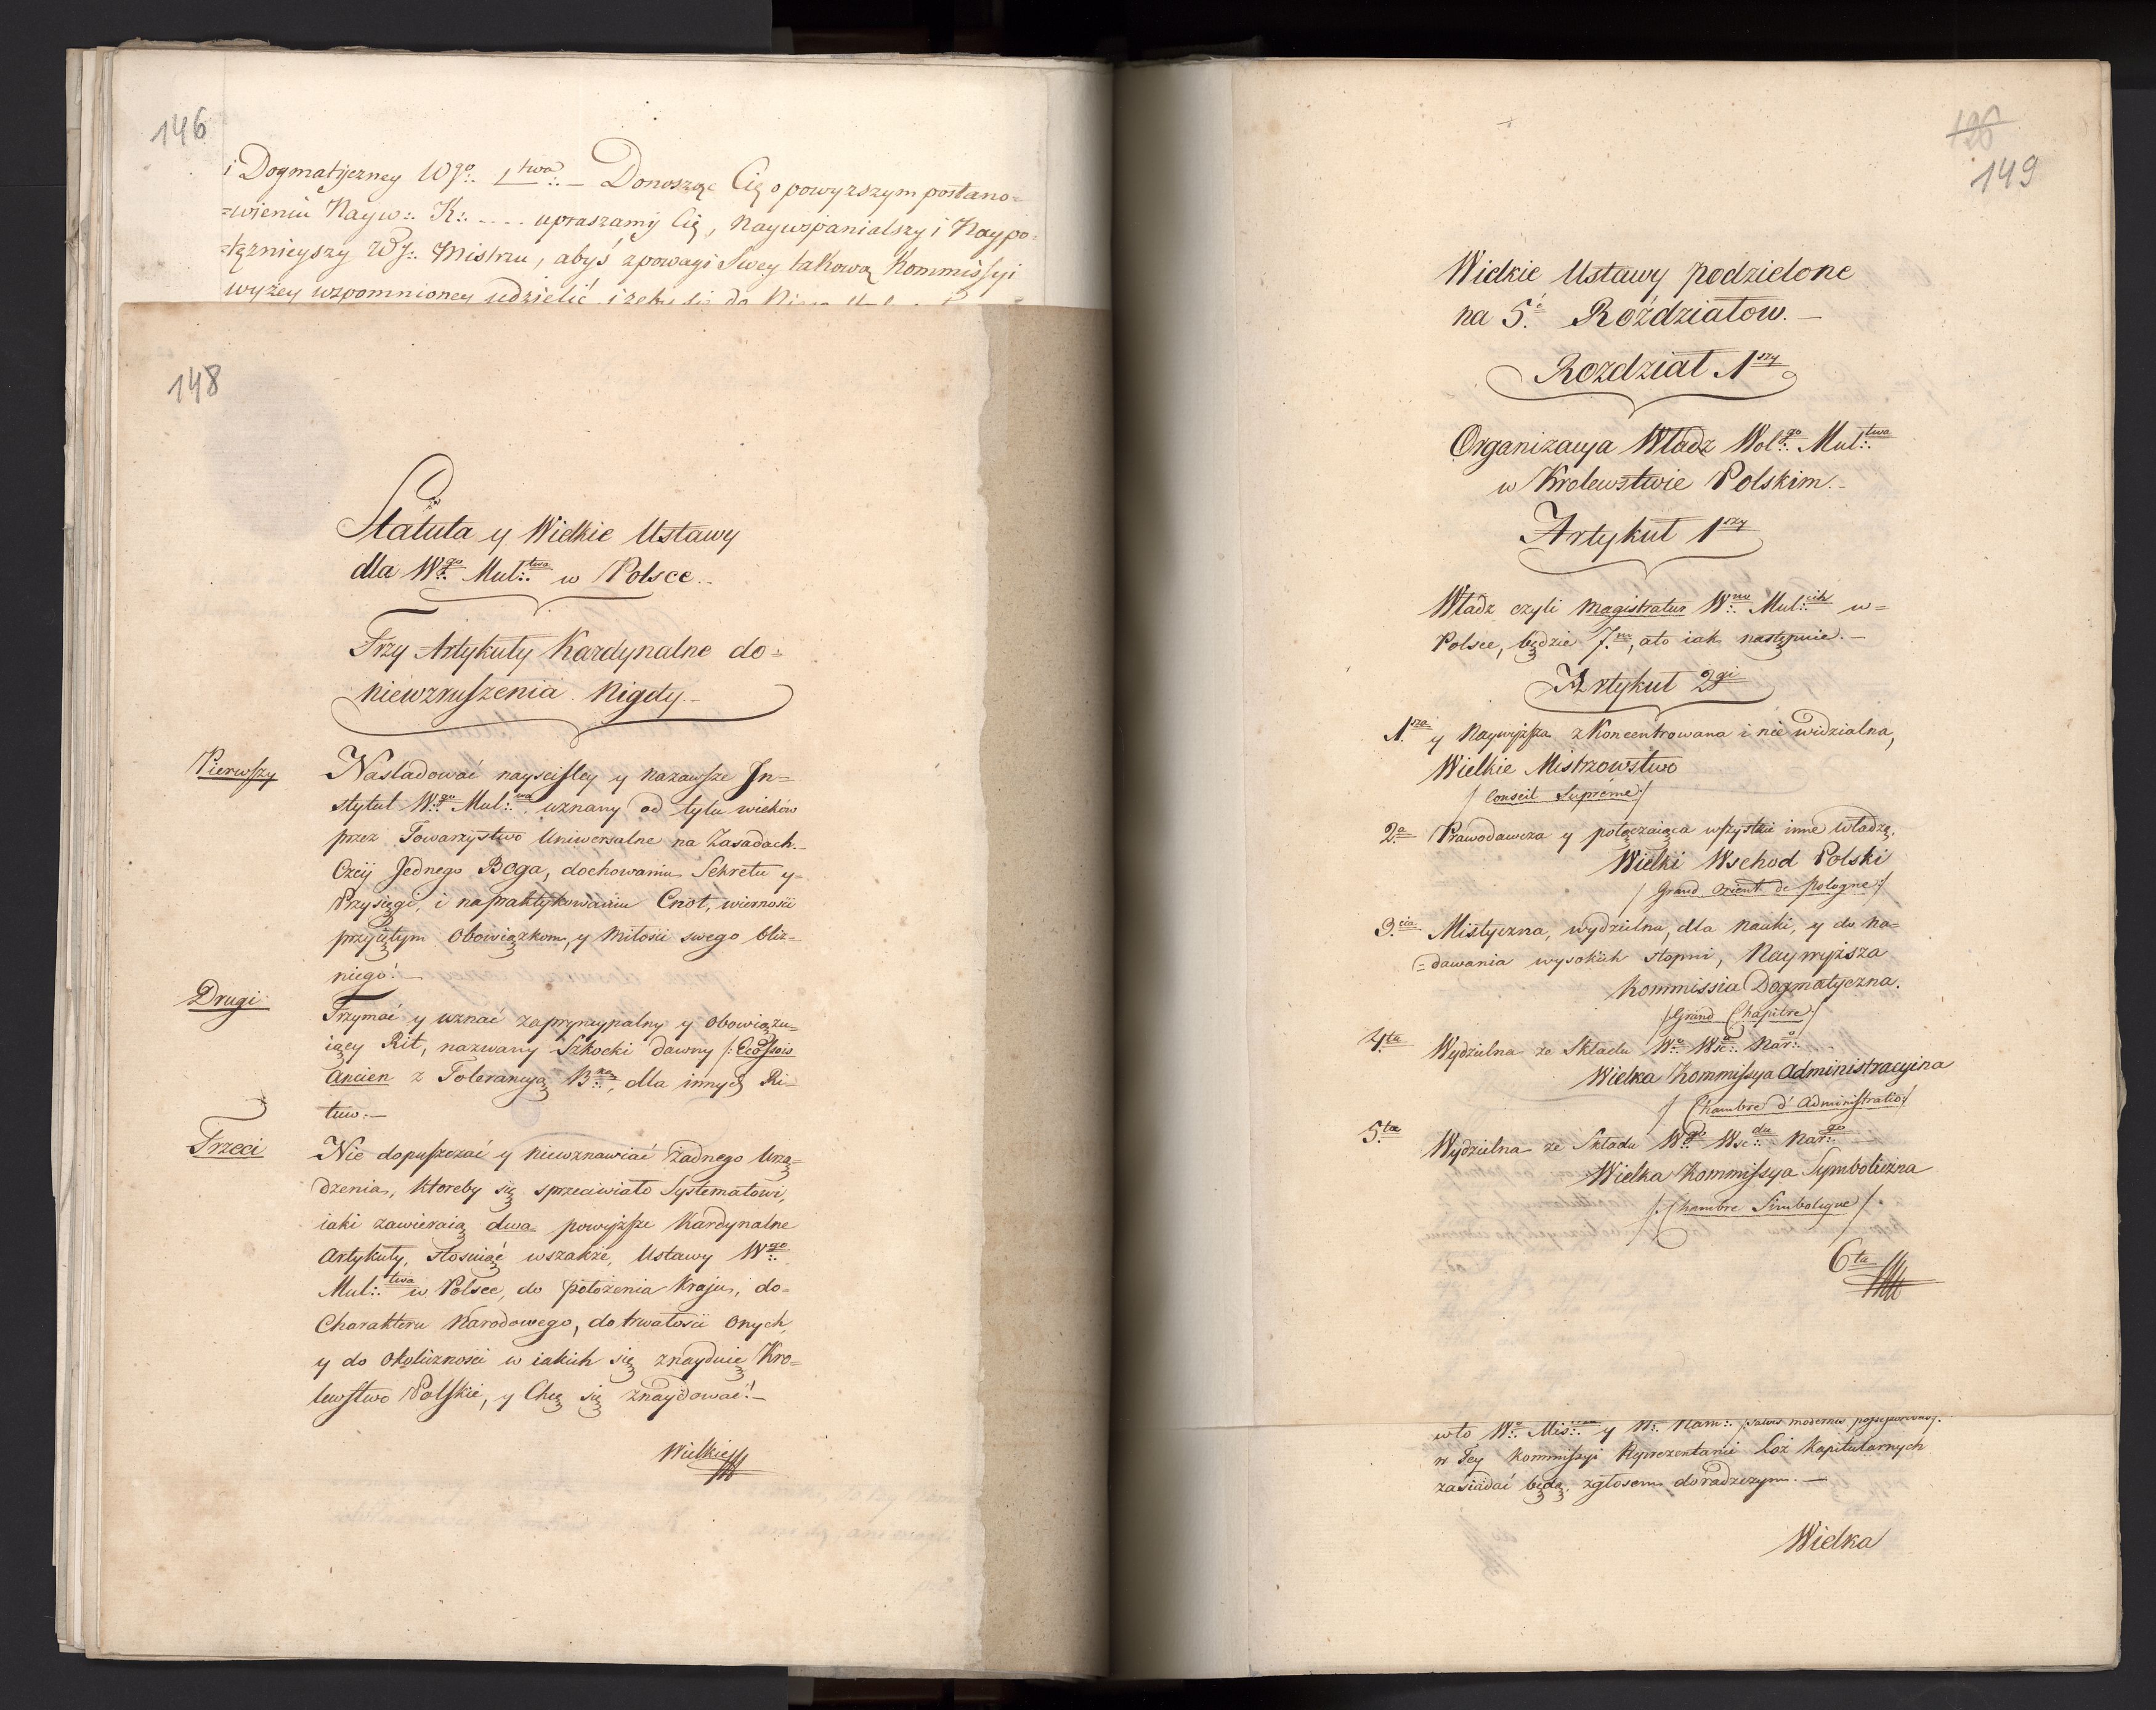 146
i Dogmatyczney Wgo:. Ltwa:. — Donosząc Cię o powyzszym postano=
=wieniu Nayw:. K:. .... upraszamy Cię, Naywspanialszy i Naypo=
=tęznieyszy W:. Mistrzu, abyś z powagi Swey takową Kommissyi
wyżey wspomnioney udzielić
148
Statuta y Wielkie Ustawy
dla Wgo:. Mul:.twa w Polsce.
Trzy Artykuły Kardynalne do=
niewzruszenia Nigdy.—
Pierwszy
Nasladować nayscisley y nazawsze In=
stytut W:.go Mul:.wa uznany od tylu wiekow
przez Towarzystwo Uniwersalne na Zasadach.—
Czcij Jednego Boga, dochowaniu Sekretu y=
Przysięgi, i napraktykowaniu Cnot, wiernosci
przyiętym Obowiązkom, y Miłosci swego bliz=
niego!—
Drugi
Trzymać y uznać zapryncypalny y Obowiązu=
iący Rit, nazwany Szkocki dawny /: Ecossois
Ancien z Tolerancyą B:.ką, dla innych Ri=
tuw.—
Trzeci
Nie dopuszczać y niewznawiać Zadnego Urzą=
dzenia, ktoreby się sprzeciwiało Systematowi,
iaki zawieraią dwa powyższe Kardynalne
Artykuły, stosuiąc wszakże, Ustawy W:.go
Mul:.twa w Polsce, do położenia Kraju, do=
Charakteru Narodowego, do trwałosci Onych,
y do Okolicznosci w iakich się znayduie Kro=
lewstwo Polskie, y Chcę się znaydować!—
Wielkie
126
149
Wielkie Ustawy podzielone
na 5.ć Roździałow.—
Rozdział 1szy
Organizacya Władz Wol:.go Mul:.twa
w Krolewstwie Polskim.—
Artykuł 1szy
Władz czyli Magistratur W:.no Mul:.cih w=
Polsce, będzie 7.m, ato iak następuie.—
Artykuł 2gi
1.sza y Naywyższa zKoncentrowana i nie widzialna,
Wielkie Mistrzowstwo
/ Conseil Supreme:/
2.a Prawodawcza y połączaiąca wszystkie inne władzę.
Wielki Wschod Polski
/ Grand Orient de Pologne:/
3.cia Mistyczna, wydzielna, dla Nauki, y do na=
=dawania wysokich stopni, Naywyższa
Kommissia Dogmatyczna.
/:Grand Chapitre:/
4.ta Wydzielna ze Składu W:.o Ws:.o Nar:.o
Wielka Kommissya Administracyina
/ Chambre d' Administratio:/
5.ta Wydzielna ze Składu W:.go Ws:.du Nar:.go —
Wielka Kommissya Symboliczna
/: Chambre Simbolique /:
6ta
wto W:.o Mis:. y N:. Nam:.
w Tey Kommissyi Reprezentanci Loż Kapitularnych
zasiadać będą, zgłosem doradczym.—
Wielka